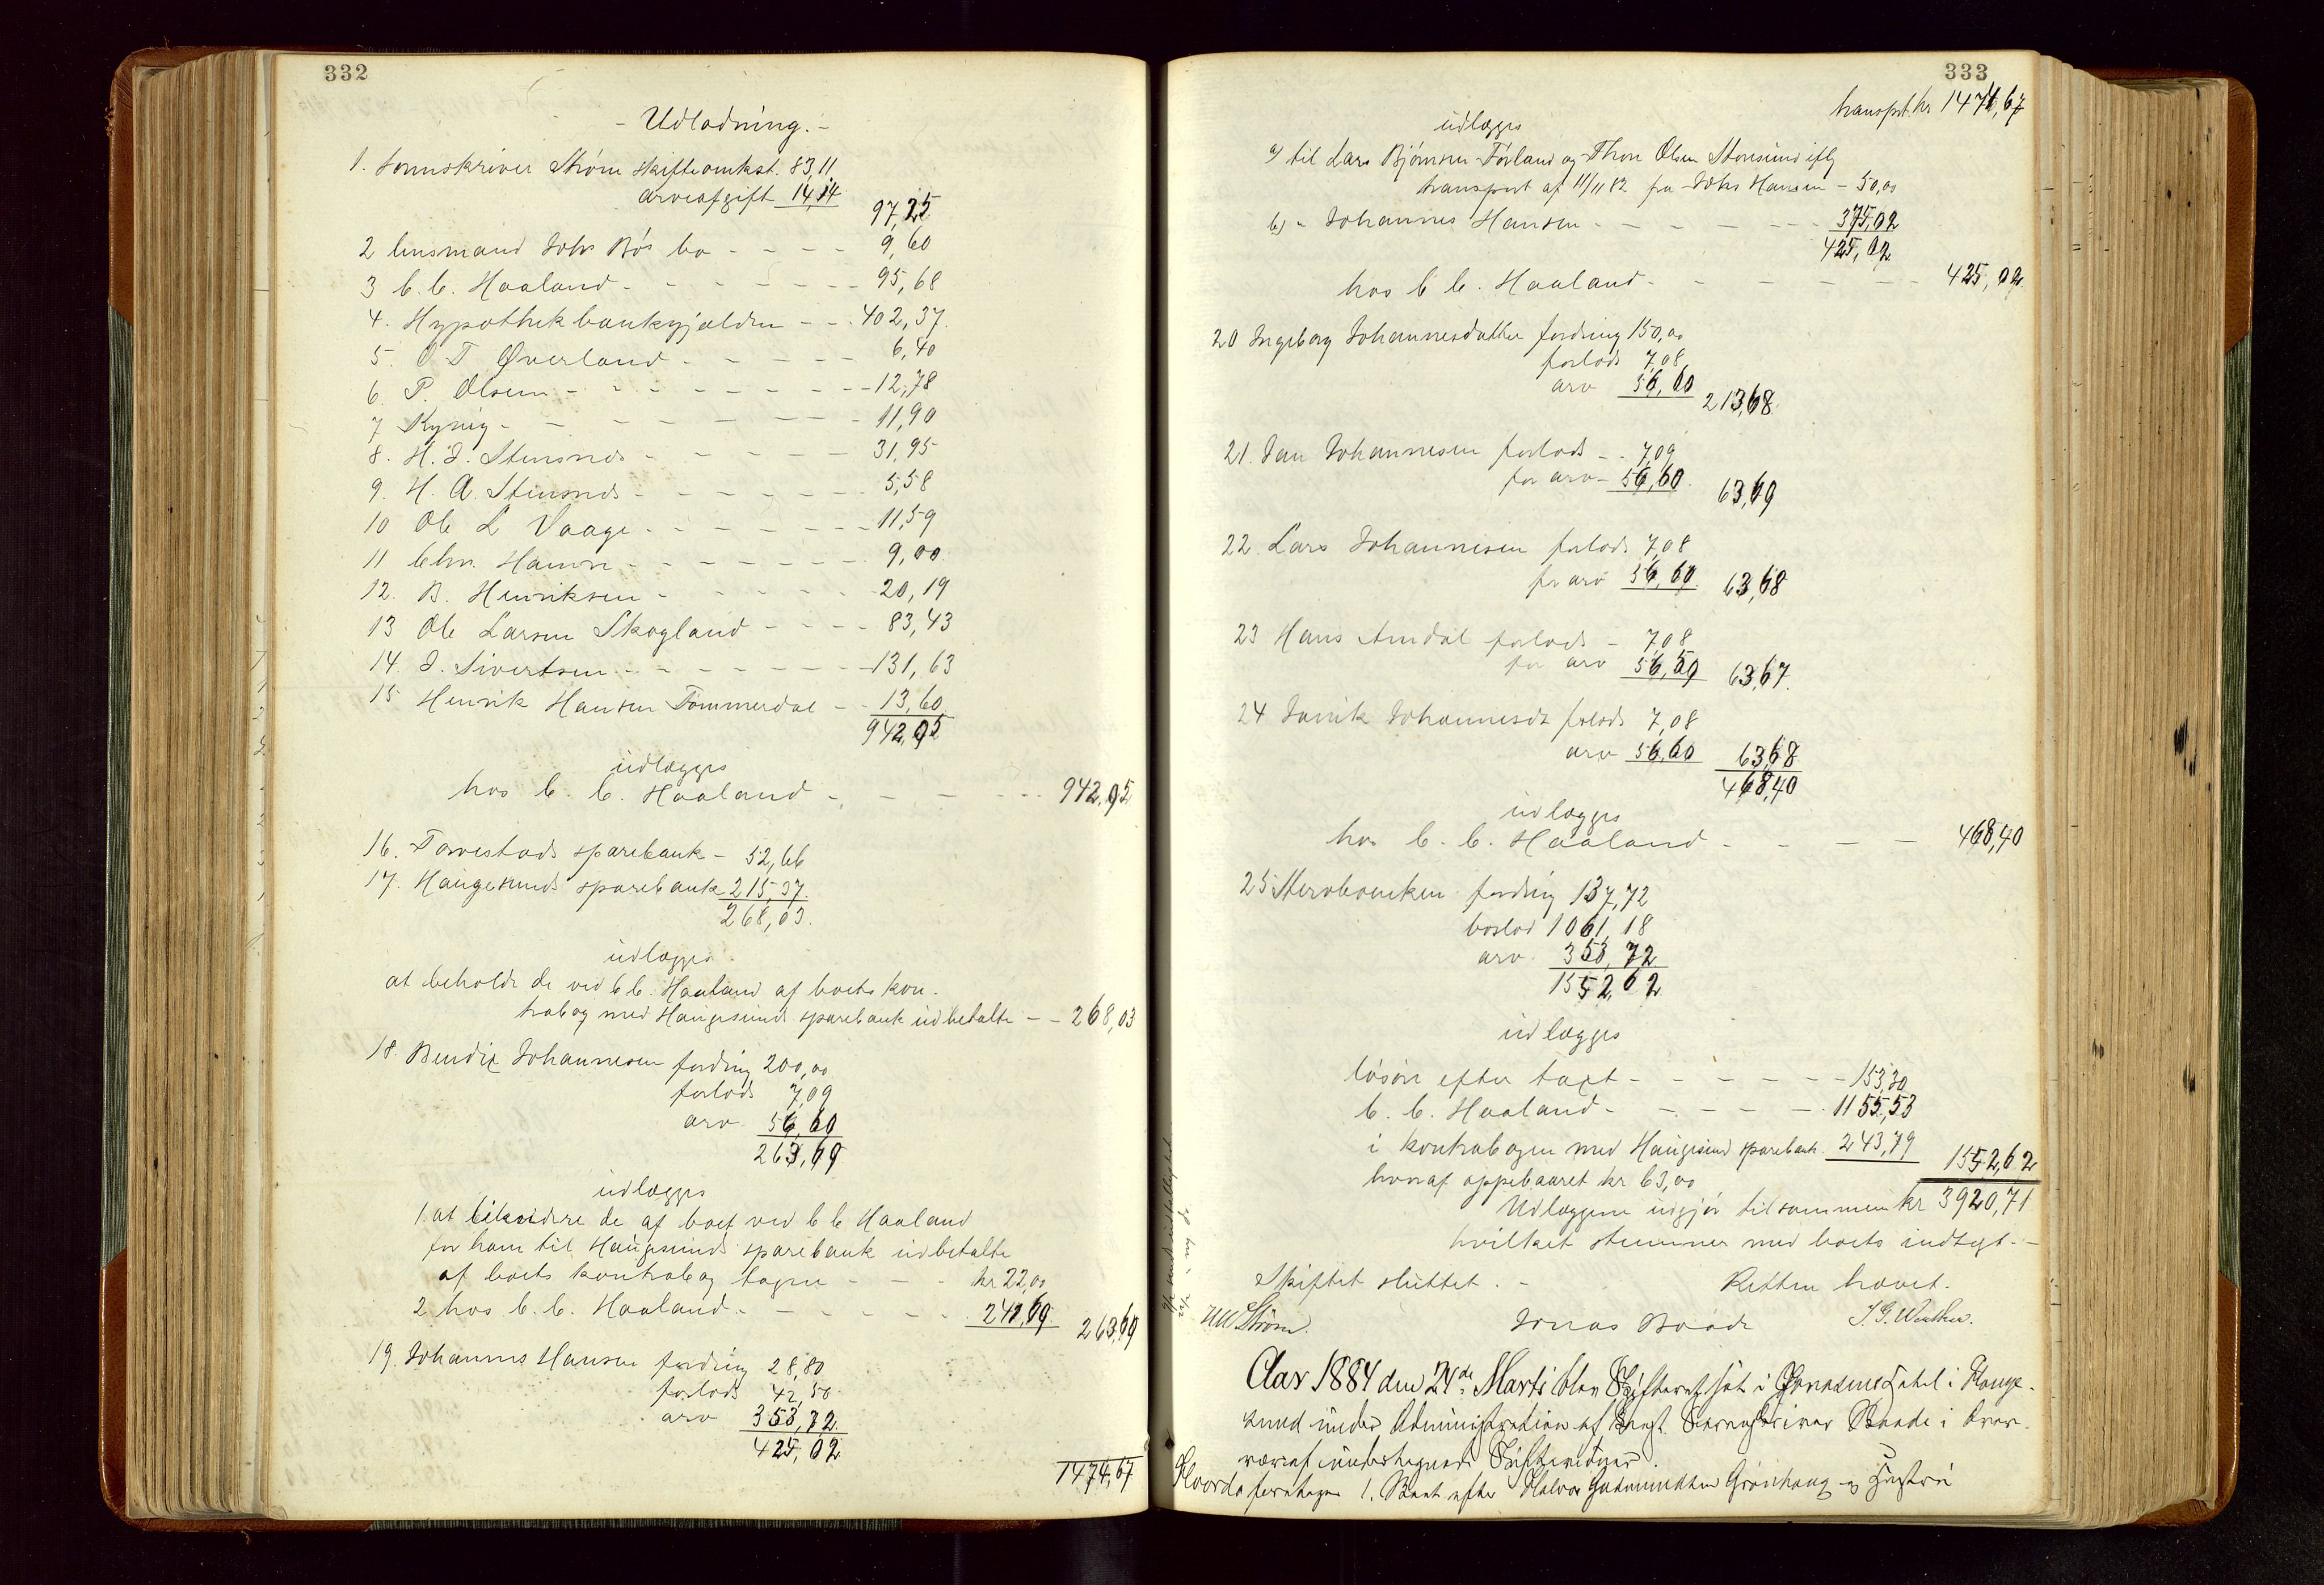 332
- Udlodning. -
1. Sorenskriver Strøm skifteomkst. 83,11
arveafgift 14,14
97,25
2 lensmand Johs Bø's bo - - - - 9,60
3 C. C. Haaland - - - - - - - 95,68
4. Hypothekbankgjælden - - - 402,37.
5. O T Øverland - - - - - 6,40
6. P. Olsen - - - - - - - - 12,78
7 Kyvig - - - - - - - - 11,90
8. H. J. Stensnds - - - - - - 31,95
9. H. A. Stensnds - - - - - - 5,58
10 Ole L Vaage - - - - - - - 11,59
11 Chr. Hansen - - - - - - - 9,00
12. B. Henriksen - - - - - - 20,19
13 Ole Larsen Skogland - - - - 83,43
14. J. Sivertsen - - - - - - - 131,63
15 Henrik Hansen Tømmerdal - - 13,60
942,95
udlægges
hos C. C. Haaland - - - - - 942,95
16. Torvestads sparebank - 52,66
17. Haugesunds sparebank 215,37
268,03.
udlægges
at beholde de ved C C. Haaland af boets kon-
trabog med Haugesunds sparebank udbetalte - - 268,03
18. Bendix Johannesen fordring 200,00
forlods 7,09
arv 56,60
263,69
udlægges
1. at likvidere de af boet ved C C Haaland
for ham til Haugesunds sparebank udbetalte
af boets kontrabog tagne - - - kr 22,00
2 hos C. C. Haaland - - - - - - 241,69.
263,69
19. Johannes Hansen fordring 28,80
forlods 42,50
arv 353,72
425,02
1474,67
333
transpt. kr 1474,67
udlægges
a) til Lars Bjørnsen Førland og Thore Olsen Stensund iflg
transport af 11/11 82 fra Johs Hansen - 50,00
b) " Johannes Hansen - - - - - - - 375,02
425,02
hos C C. Haaland - - - - - - - 425,02
20 Ingeborg Johannesdatter fordring 150,00
forlods 7,08
arv 56,60
213,68
21. Jan Johannesen forlods - - 7,09
for arv - 56,60
63,69
22. Lars Johannesen forlods 7,08
for arv 56,60
63,68
23 Hans Amdal forlods - 7,08
for arv 56,59
63,67.
24 Janik Johannesdt forlods 7,08
arv 56,60
63,68
468,40
udlægges
hos C. C. Haaland - - - - - 468,40
25 Stervboenken fordring 137,72
boslod 1061,18
arv 353,72
1552,62
udlægges
løsøre efter taxt - - - - - - 153,30
C. C. Haaland - - - - - - 1155,53
i kontrabogen med Haugesund sparebank 243,79
1552,62
hvoraf oppebaaret kr 63,00
Udlæggene udgjør tilsammen kr 3920,71
hvilket stemmer med boets indtægt. -
Skiftet sluttet. - Retten hævet.
Strøm. Jonas Baade
Aar 1884 den 24de Marts blev Skifteret sat i i Hauge-
sund under Administration af Sorenskriver Baade i Over-
vær af undertegnede Skiftevidner.
Hvorda foretages 1. Boet efter Halvor Gudmundsen Grønhaug og Hustru